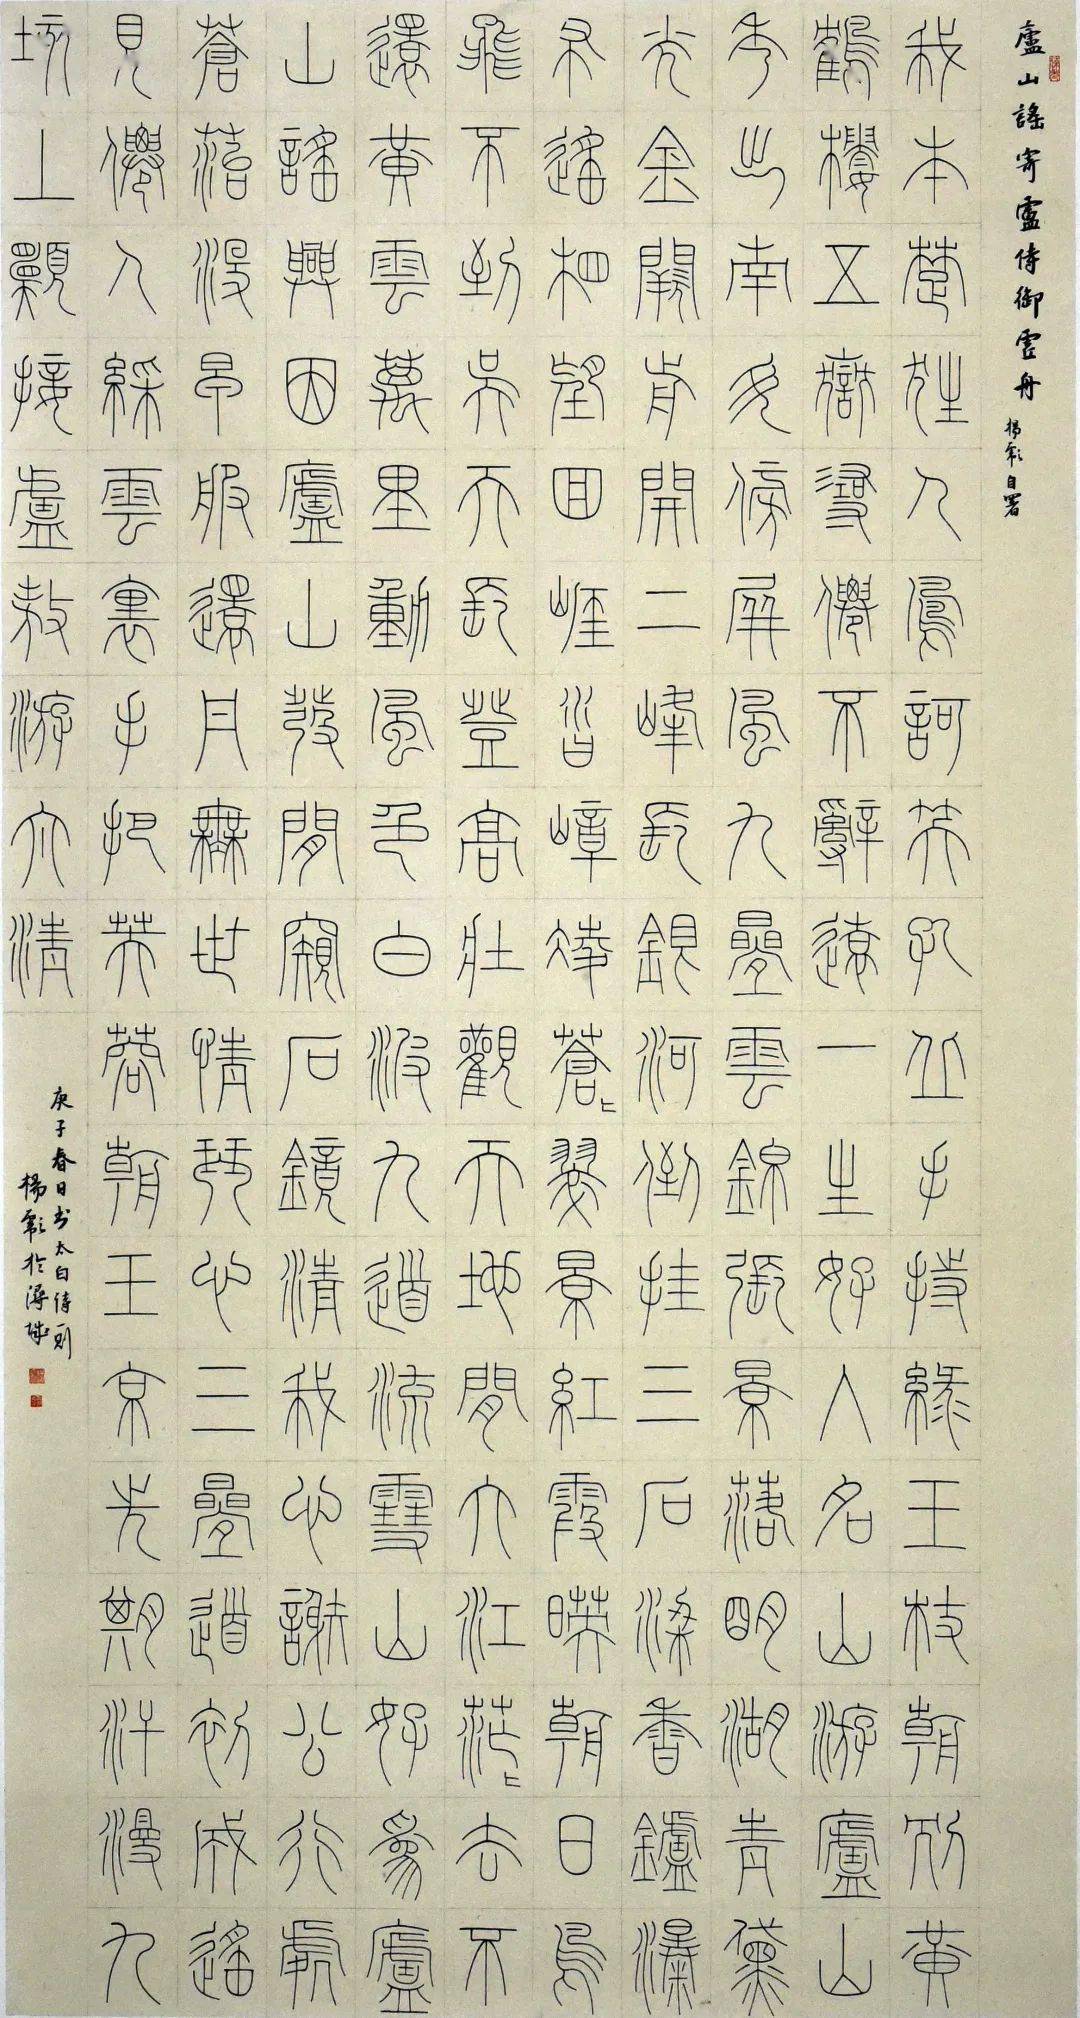 廬山謠寄盧侍御虛舟
楊自署
我本楚狂人鳳訶笑孔丘手持綠玉枝朝別黃
鶴樓五嶽尋僊不辭遠一生好入名山游廬山
秀出南斗傍屏風九疊雲錦張景落明湖青黛
光金闕前開二峰長銀河倒挂三石梁香鑪瀑
布遙相望回崖沓嶂淩蒼〻翠景紅霞映朝日鳥
飛不到吳天長登高壯觀天地間大江茫〻去不
還黃雲萬里動風色白波九道流雪山好為廬
山謠興因廬山發閒窺石鏡清我心謝公行處
蒼苔沒早服還丹無世情琴心三疊道初成遙
見僊人綵雲裏手把芙蓉朝玉京先期汗漫九
垓上願接盧敖游太清
庚子春日書太白詩一則
楊於潯城